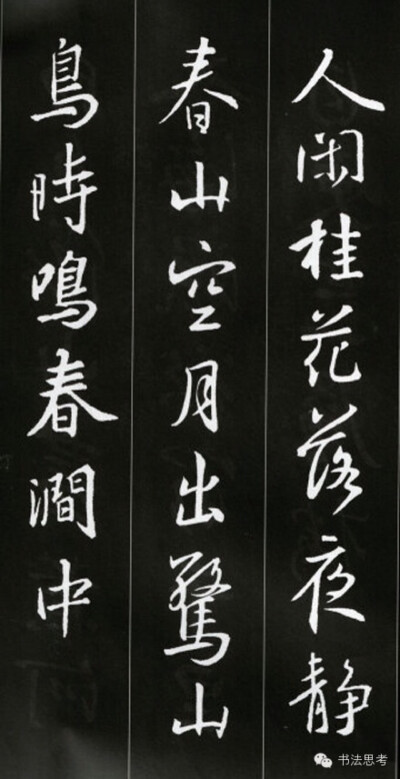 人闲桂花落夜静
春山空月出驚山
鳥時鳴春澗中
书法思考